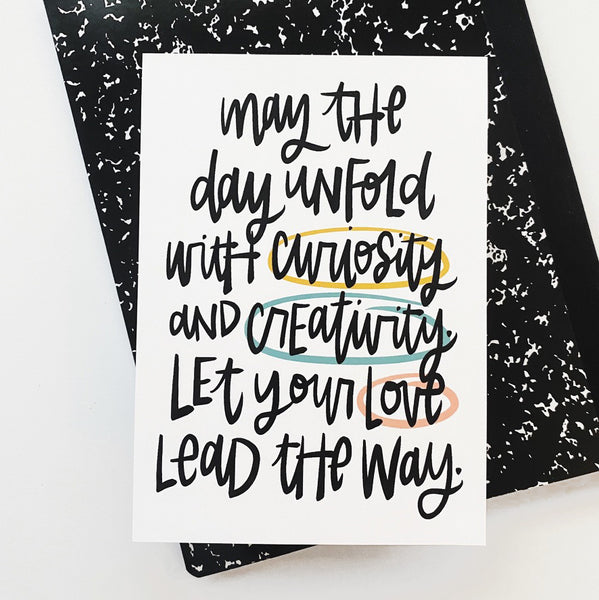 may the
day unfold
with curiosity
and creativity.
Let your Love
Lead the way.